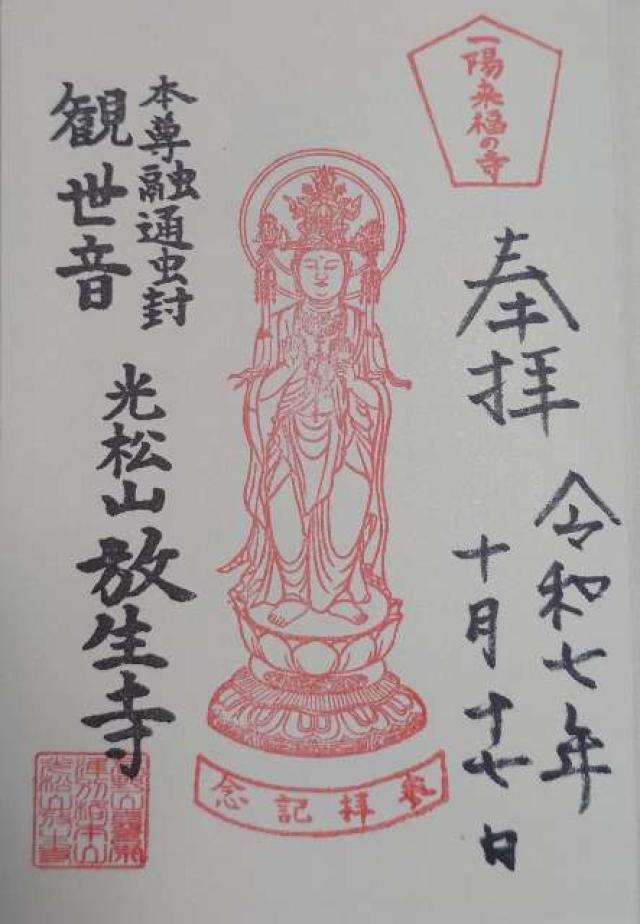 一陽来福の寺
奉拝
令和七年
十月十七日
参拝記念
本尊融通虫封
観世音
光松山放生寺